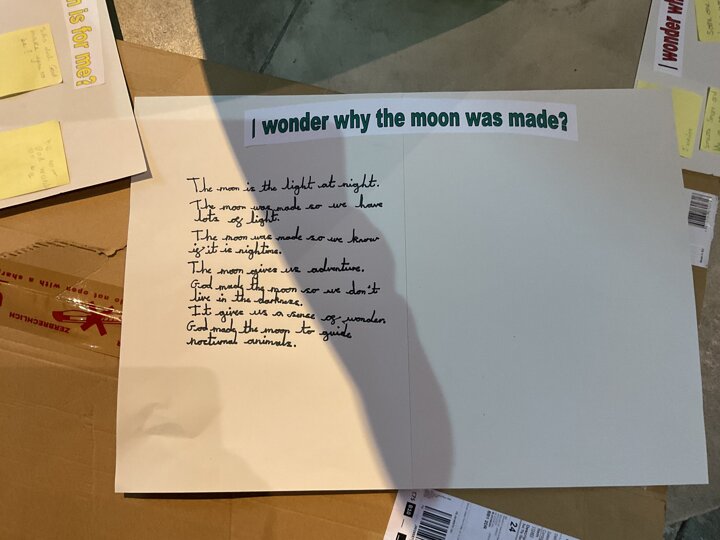 I wonder why the moon was made?
The moon is the light at night.
The moon was made so we have
lots of light.
The moon was made so we know
if it is nightime.
The moon gives us adventure.
God made the moon so we don't
live in the darkness.
It gives us a sense of wonder.
God made the moon to guide
noctunal animals.
is for me?
I wonder wh
do not open with a shar
ZERBRECHLICH
24